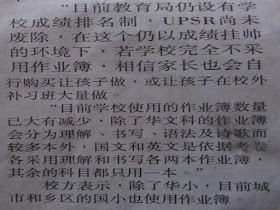 “目前教育局仍设有学
校成绩排名制，UPSR尚未
废除，在这个仍以成绩挂帅
的环境下，若学校完全不采
用作业簿，相信家长也会自
行购买让孩子做，或让孩子在校外
补习班大量做。
“目前学校使用的作业簿数量
已大有减少，除了华文科的作业簿
会分为理解、书写、语法及诗歌而
较多本外，国文和英文是依据考卷
各采用理解和书写各两本作业簿，
其余的科目都只用一本。”
校方表示，除了华小，目前城
市和乡区的国小也使用作业簿。